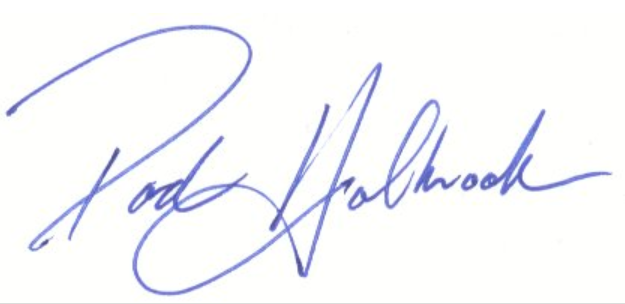 Rod Holbrook